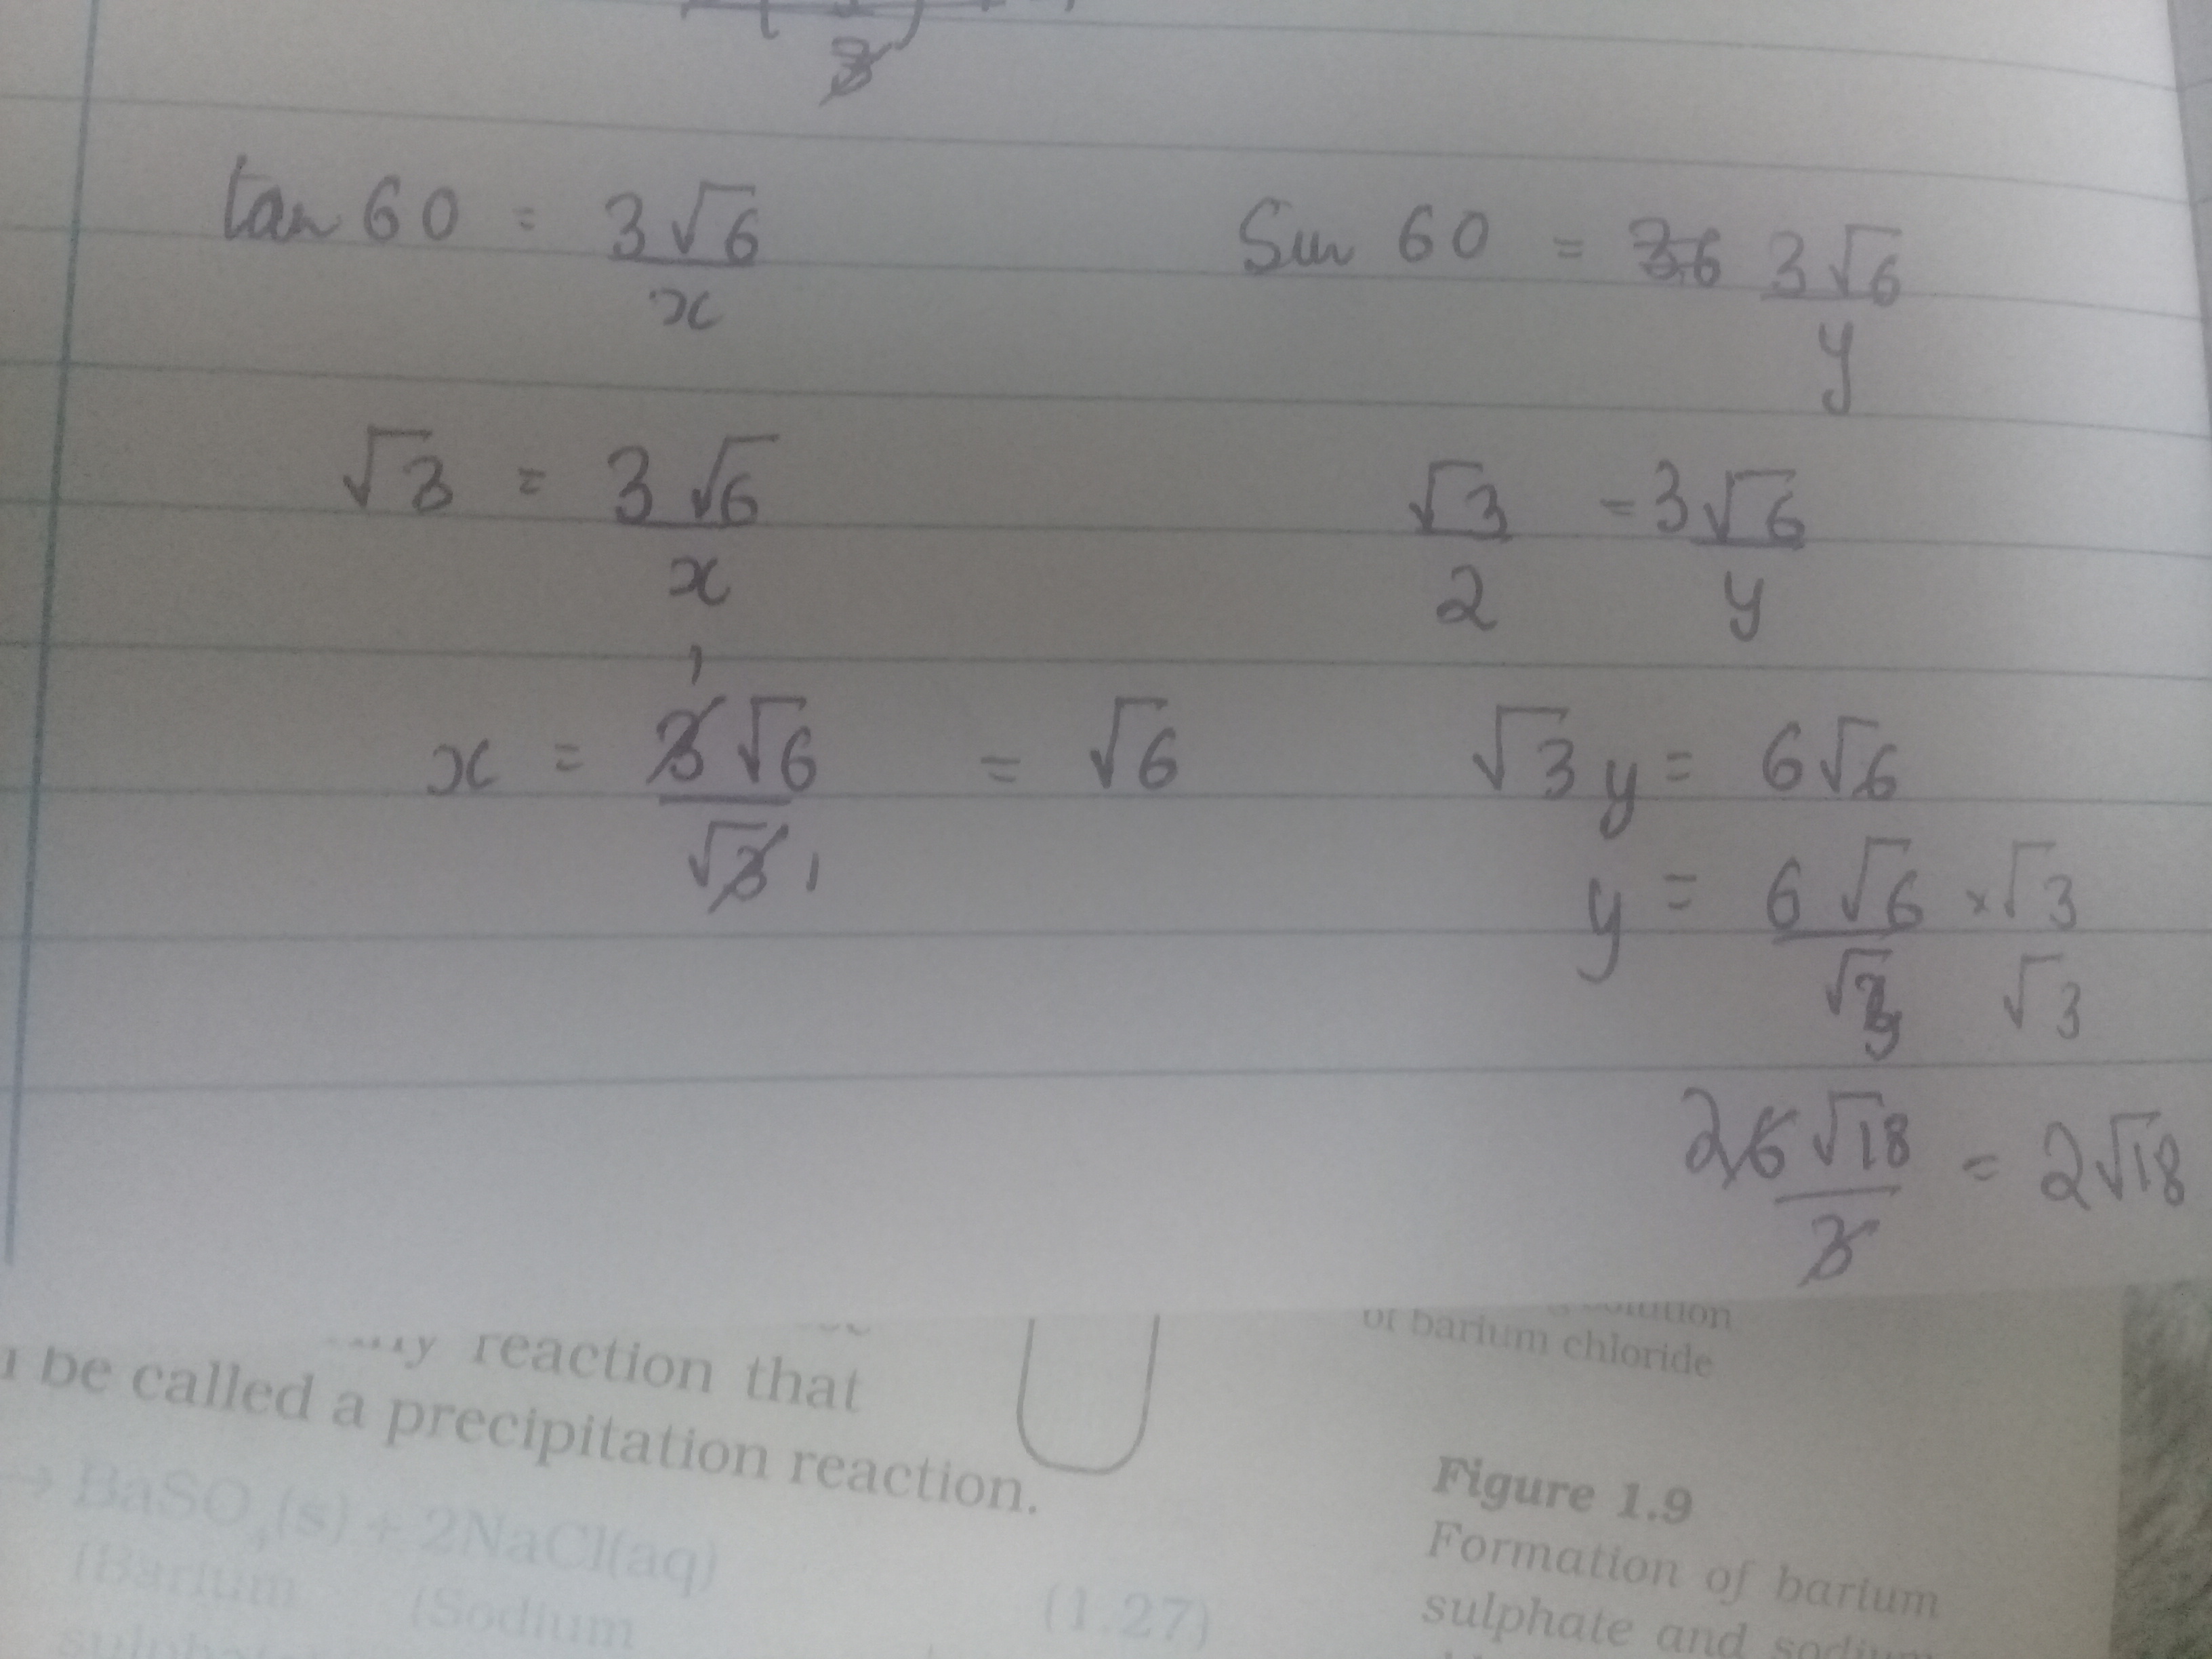 3
tan 60 = 3√6 / x
√3 = 3√6 / x
x = 3√6 / √3 = √6
1
1
Sin 60 = 3√6 / y
√3 / 2 = 3√6 / y
√3 y = 6√6
y = 6√6 / √3 × √3 / √3
2 6√18 / 3 = 2√18
reaction that
be called a precipitation reaction.
→ BaSO₄(s) + 2NaCl(aq)
(Barium (Sodium
(1.27)
of barium chloride
Figure 1.9
Formation of barium
sulphate and